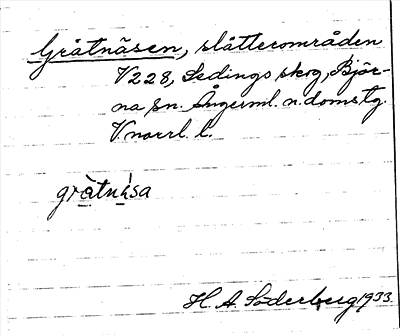 Gråtnäsen, slåtterområden
V228, Sedings skog, Björ-
na sn. Ångerml. n. doms tg.
V.norrl. l.
gràtnsa
H. A. Söderberg 1933.